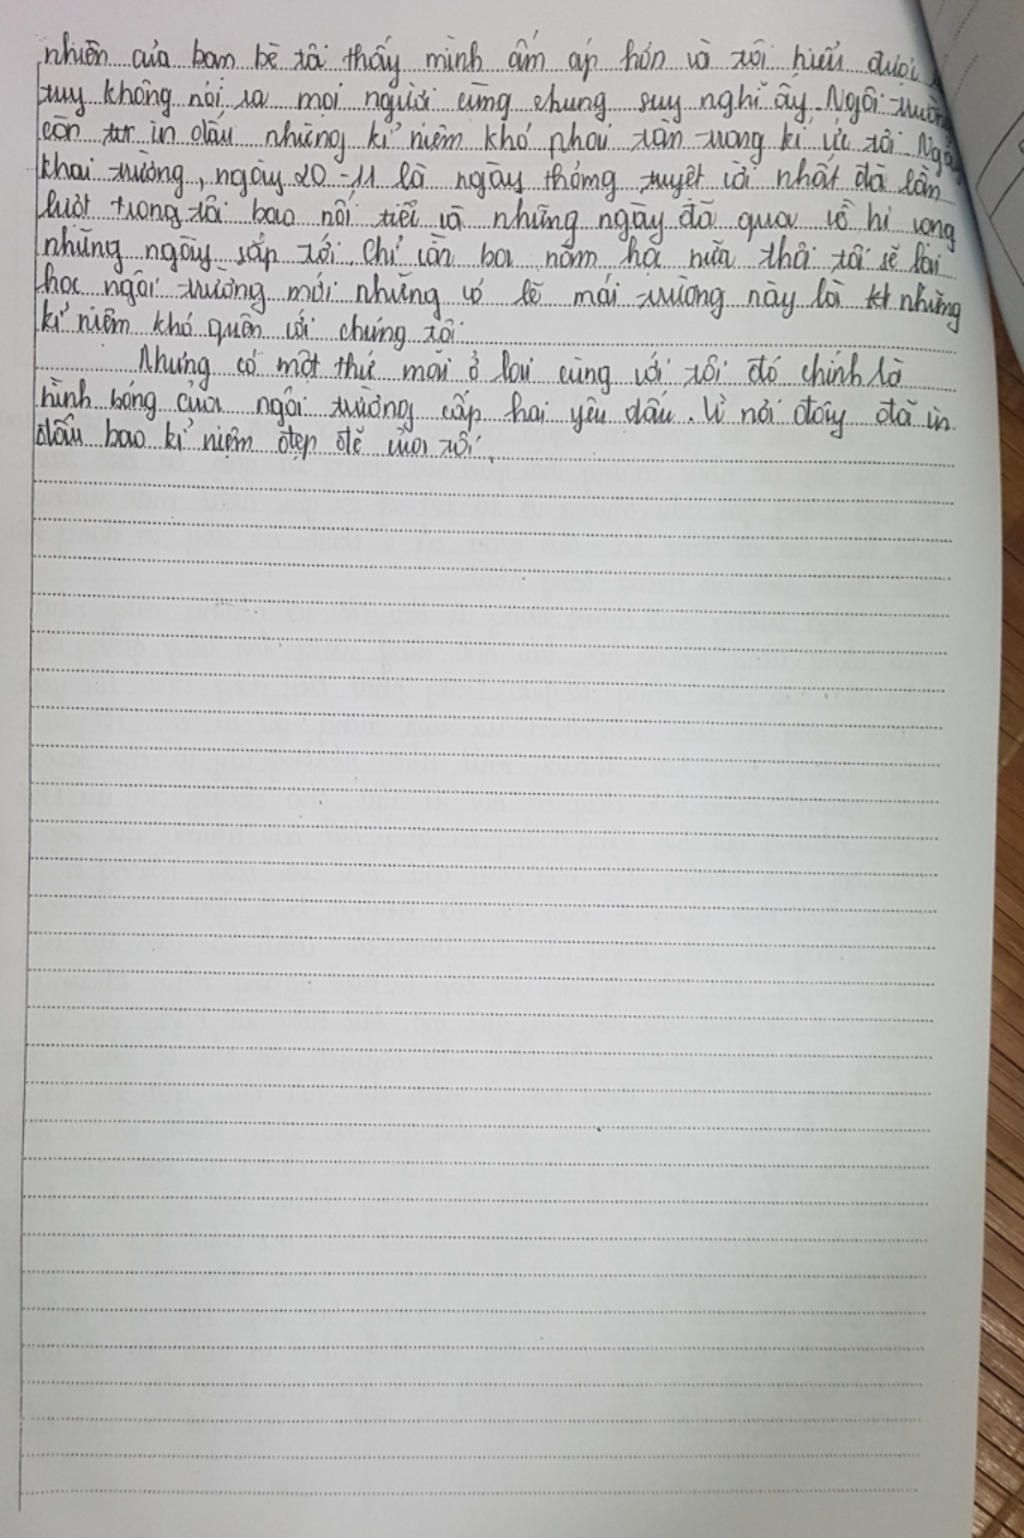 nhiên của bạn bè tôi thấy mình ấm áp hơn và tôi hiểu được
tuy không nói ra mọi người cũng chung suy nghĩ ấy. Ngôi trường
còn in dấu những kỉ niệm khó phai trong kí ức tôi. Ngày
khai trường, ngày 20-11 là ngày tháng tuyệt vời nhất đã lần
lượt trong tôi bao nối tiếc và những ngày đã qua về hi vọng
những ngày sắp tới. Chỉ cần ba năm học nữa thôi tôi sẽ lại
học ngôi trường mới nhưng có lẽ mái trường này là những
kỉ niệm khó quên với chúng tôi
Nhưng có một thứ mãi ở lại cùng với tôi đó chính là
hình bóng của ngôi trường cấp hai yêu dấu. Vì nơi đây đã in
dấu bao kỉ niệm đẹp đẽ của tôi.